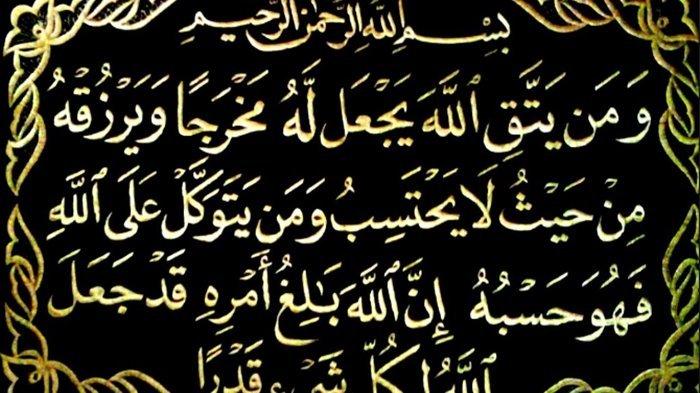 بِسْمِ اللَّهِ الرَّحْمَٰنِ الرَّحِيمِ
وَمَن يَتَّقِ ٱللَّهَ يَجْعَل لَّهُ مَخْرَجًا وَيَرْزُقْهُ
مِنْ حَيْثُ لَا يَحْتَسِبُ وَمَن يَتَوَكَّلْ عَلَى ٱللَّهِ
فَهُوَ حَسْبُهُ إِنَّ ٱللَّهَ بَٰلِغُ أَمْرِهِ قَدْ جَعَلَ
ٱللَّهُ لِكُلِّ شَىْءٍ قَدْرًا